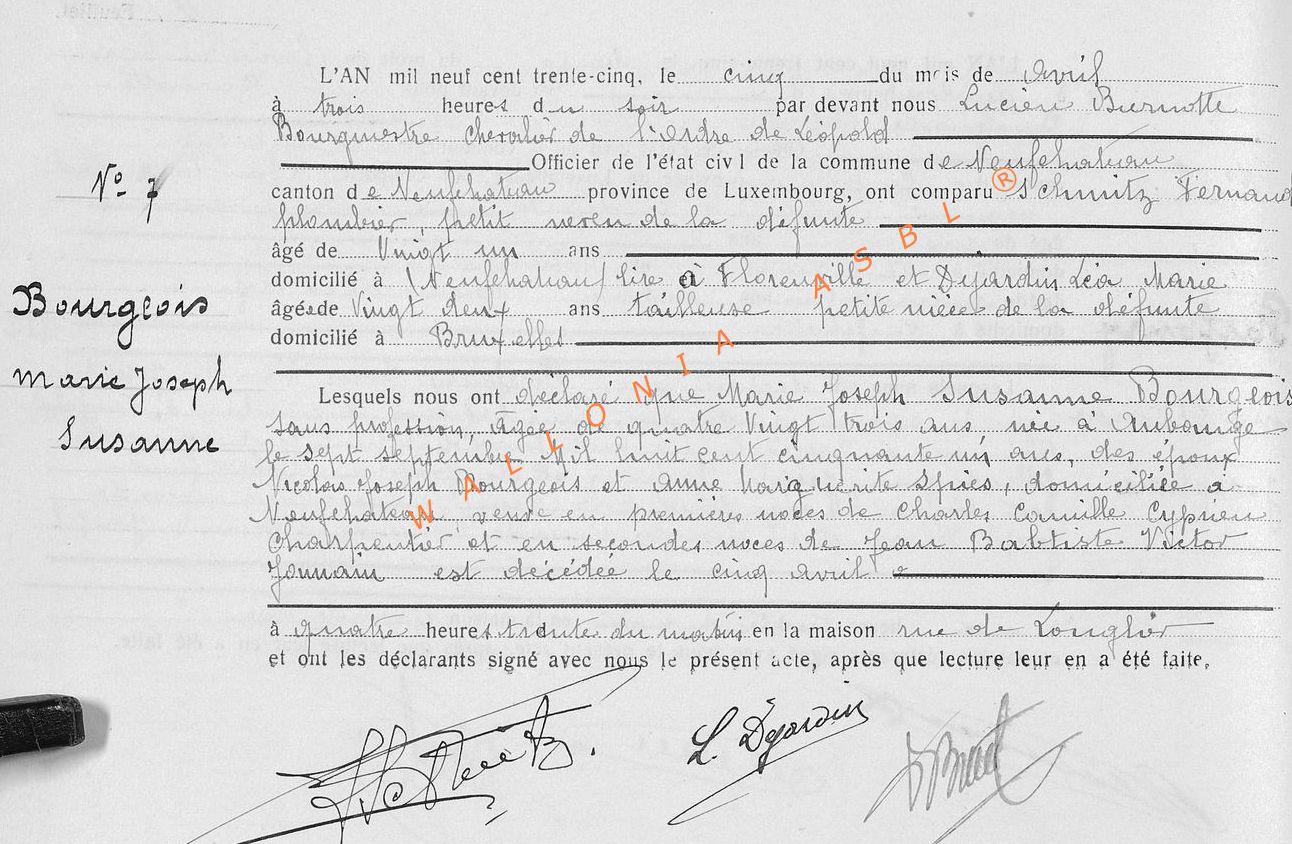 L'AN mil neuf cent trente-cinq, le cinq du mois de Avril
à trois heures du soir par devant nous Lucien Burnotte
Bourgmestre Chevalier de l'ordre de Léopold
Officier de l'état civil de la commune de Neufchateau
canton de Neufchateau province de Luxembourg, ont comparu Schmitz Fernand
plombier, petit neveu de la défunte
âgé de Vingt un ans
domicilié à (Neufchateau) lire à Florenville et Dejardin Léa Marie
âgée de Vingt deux ans tailleuse petite nièce de la défunte
domicilié à Bruxelles
Lesquels nous ont déclaré que Marie Joseph Susanne Bourgeois
sans profession, âgée de quatre Vingt trois ans née à Aubange
le sept septembre Mil huit cent cinquante un ans, des époux
Nicolas Joseph Bourgeois et Anne Marguerite Spies, domiciliée à
Neufchateau, veuve en premières noces de Charles Camille Cyprien
Charpentier et en secondes noces de Jean Babtiste Victor
est décédée le cinq avril
à quatre heures trente du matin en la maison rue de Longlier
et ont les déclarants signé avec nous le présent acte, après que lecture leur en a été faite.
No 7
Bourgeois
Marie Joseph
Susanne
L. Dejardin
WALLONIA ASBL ®